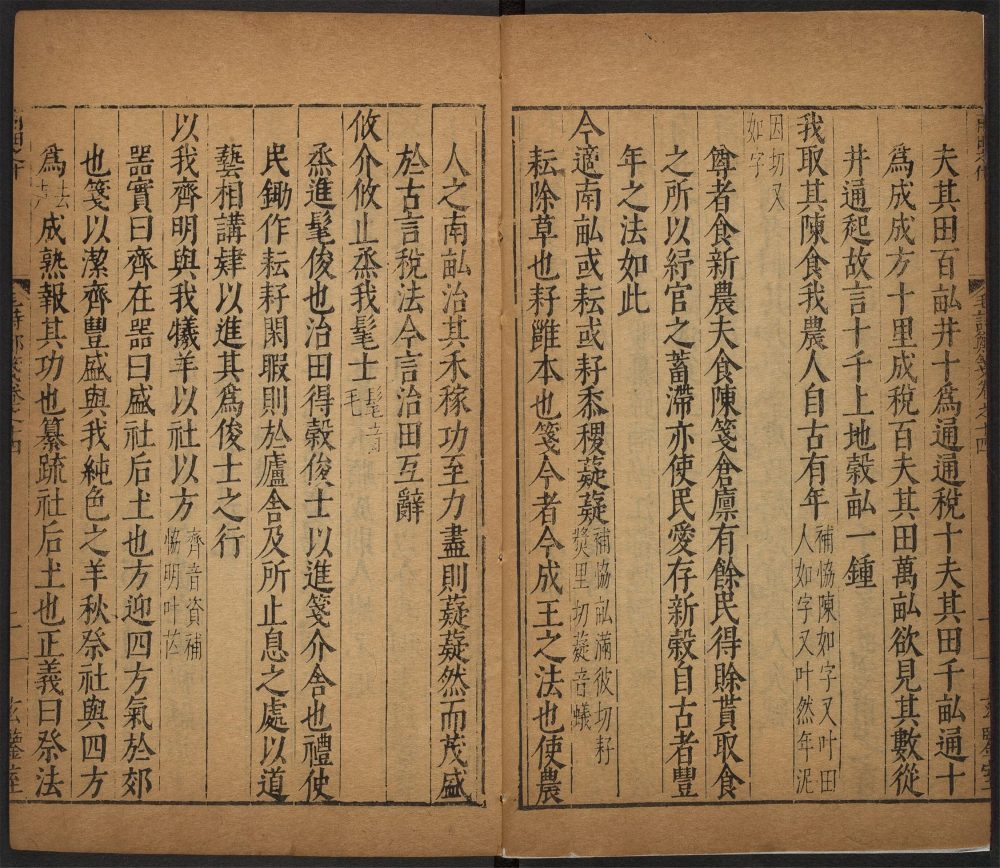 夫其田百畝井十為通通稅十夫其田千畝通十
為成成方十里成稅百夫其田萬畝欲見其數從
井通起故言十千上地穀畝一鍾
我取其陳食我農人自古有年補協陳如字又叶田人如字又叶然年泥
因切又如字
尊者食新農夫食陳箋倉廩有餘民得賒貰取食
之所以紓官之蓄滯亦使民愛存新穀自古者豐
年之法如此
今適南畝或耘或耔黍稷薿薿補協畝滿彼切耔獎里切薿音蟻
耘除草也耔雝本也箋今者今成王之法也使農
人之南畝治其禾稼功至力盡則薿薿然而茂盛
於古言稅法今言治田互辭
攸介攸止烝我髦士髦音毛
烝進髦俊也治田得穀俊士以進箋介舍也禮使
民鋤作耘耔閑暇則於廬舍及所止息之處以道
藝相講肄以進其為俊士之行
以我齊明與我犧羊以社以方齊音資補協明叶芒
器實曰齊在器曰盛社后土也方迎四方氣於郊
也箋以潔齊豐盛與我純色之羊秋祭社與四方
為五穀成熟報其功也纂疏社后土也正義曰祭法
玄鑒室